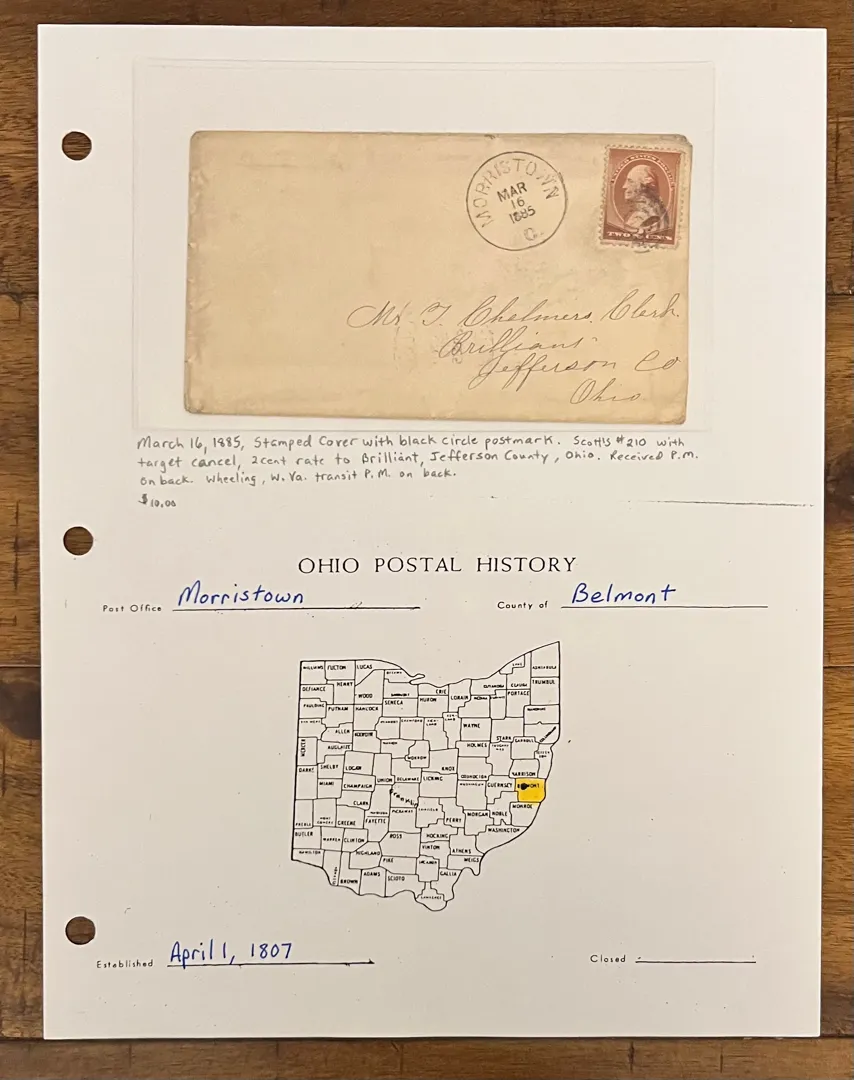 MORRISTOWN
MAR
16
1885
O.
UNITED STATES POSTAGE
TWO CENTS
Mr. T. Chalmers. Clark
Brilliant
Jefferson Co
Ohio.
March 16, 1885, Stamped Cover with black circle postmark. Scott's #210 with
target cancel, 2cent rate to Brilliant, Jefferson County, Ohio. Received P.M.
on back. Wheeling, W. Va. transit P.M. on back.
$10.00
OHIO POSTAL HISTORY
Post Office Morristown County of Belmont
WILLIAMS FULTON LUCAS LAKE ASHTABULA
DEFIANCE HENRY WOOD ERIE LORAIN TRUMBULL
PAULDING PUTNAM HANCOCK SENECA HURON PORTAGE
ALLEN WAYNE STARK CARROLL
MERCER AUGLAIZE HOLMES
DARKE SHELBY LOGAN MORROW KNOX COSHOCTON HARRISON
MIAMI CHAMPAIGN UNION DELAWARE LICKING GUERNSEY BELMONT
CLARK Franklin MONROE
PREBLE GREENE FAYETTE PERRY MORGAN NOBLE
BUTLER WARREN CLINTON ROSS HOCKING WASHINGTON
HAMILTON HIGHLAND PIKE VINTON ATHENS MEIGS
BROWN ADAMS SCIOTO GALLIA
LAWRENCE
Established April 1, 1807 Closed